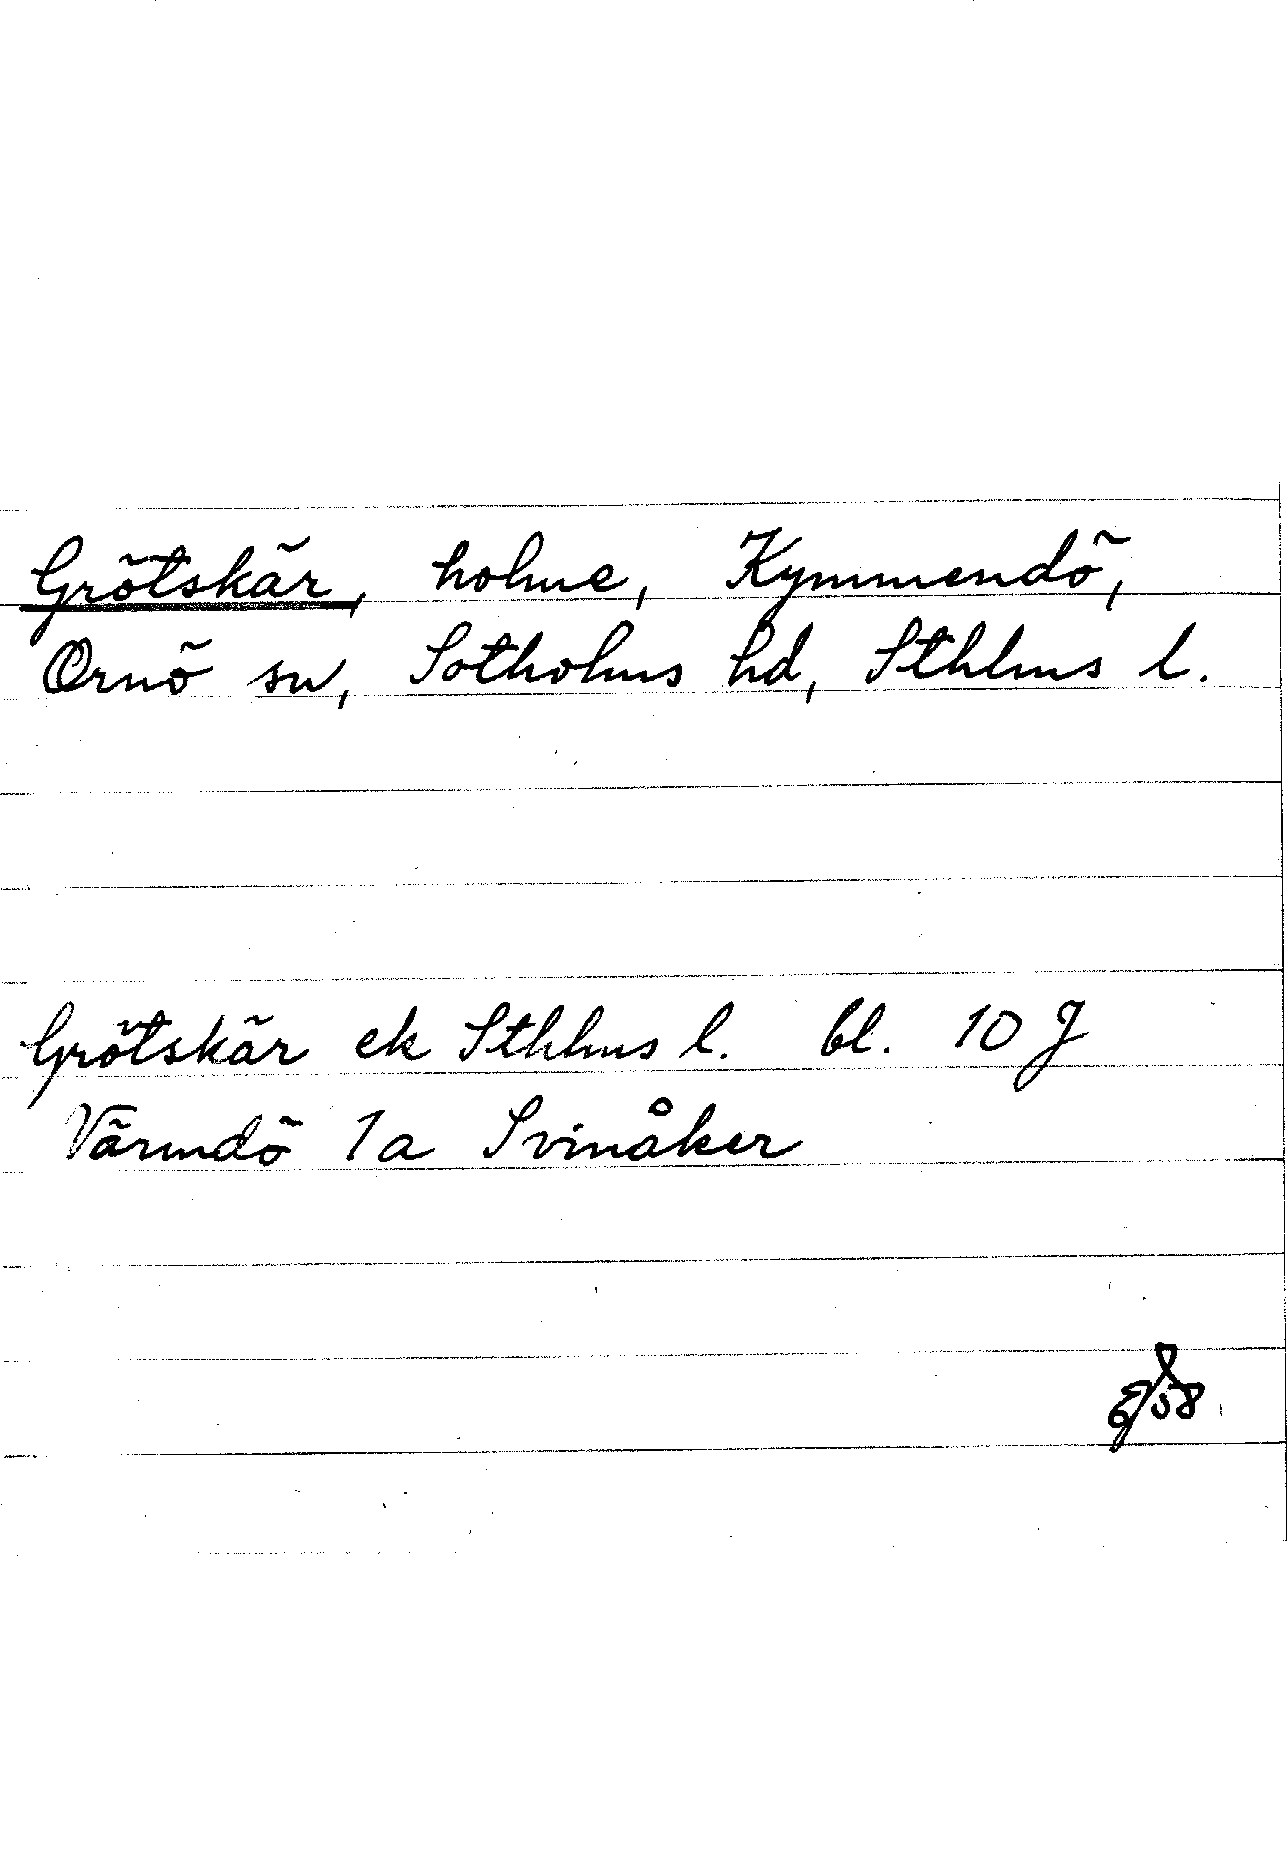 Grötskär, holme, Kymmendö,
Ornö sn, Sotholms hd, Sthlms l.
Grötskär ek Sthlms l. bl. 10 J
Värmdö 1a Svinåker
58